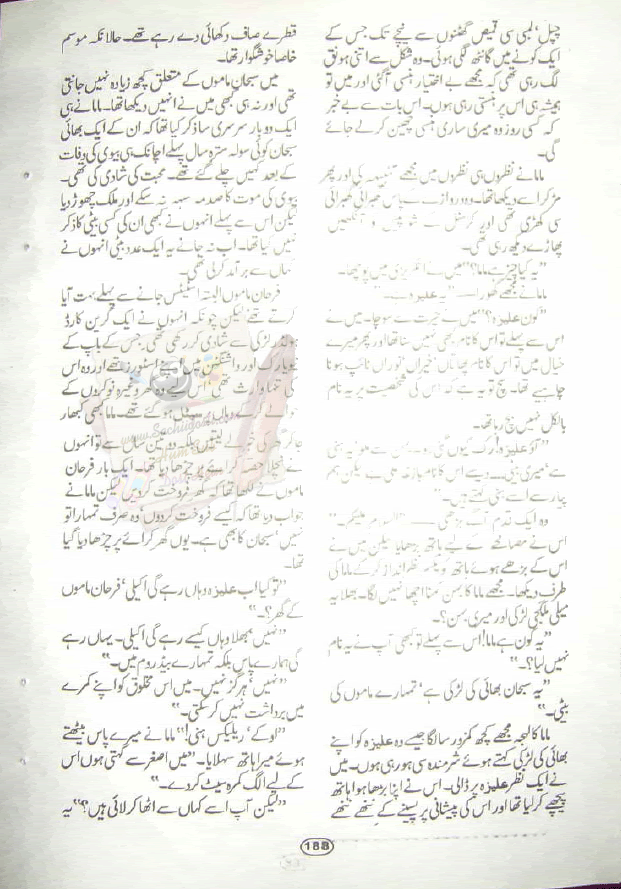 چپل لمبی سی قمیص گھٹنوں سے نیچے تک جس کے
ایک کونے میں گانٹھ لگی ہوئی۔ وہ شکل سے اتنی ہونق
لگ رہی تھی کہ مجھے بے اختیار ہنسی آ گئی اور میں تو
ہمیشہ ہی اس پر ہنستی رہی ہوں۔ اس بات سے بے خبر
کہ کسی روز وہ میری ساری ہنسی چھین کر لے جائے
گی۔
ماما نے نظروں ہی نظروں میں مجھے تنبیہہ کی اور پھر
مڑ کر اسے دیکھا تھا۔ وہ دروازے کے پاس گھبرائی گھبرائی
سی کھڑی تھی اور کرسٹل کے شو پیس کو آنکھیں
پھاڑے دیکھ رہی تھی۔
"یہ کیا چیز ہے ماما؟" میں نے انگریزی میں پوچھا۔
ماما نے مجھے گھورا۔ "یہ علیزہ ہے۔"
"کون علیزہ؟" میں نے حیرت سے سوچا۔ میں نے
اس سے پہلے تو اس کا نام بھی نہیں سنا تھا اور پھر میرے
خیال میں تو اس کا نام پھاتاں' خیراں' نوراں ٹائپ ہونا
چاہیے تھا۔ سچ تو یہ ہے کہ اس کی شخصیت پر یہ نام
بالکل نہیں جچ رہا تھا۔
"آؤ علیزہ! رک کیوں گئی ہو۔ ان سے ملو یہ ہنی
ہے' میری بیٹی۔ ویسے اس کا نام ہے لیکن ہم
پیار سے اسے ہنی کہتے ہیں۔"
وہ ایک قدم آگے بڑھی — "السلام علیکم۔"
اس نے مصافحے کے لیے ہاتھ بڑھایا لیکن میں نے
اس کے بڑھے ہوئے ہاتھ کو یکسر نظر انداز کر کے ماما کی
طرف دیکھا۔ مجھے ماما کا بہن کہنا اچھا نہیں لگا۔ بھلا یہ
میلی ملگجی لڑکی اور میری بہن؟۔
"یہ کون ہے ماما! اس سے پہلے تو کبھی آپ نے یہ نام
نہیں لیا؟۔"
"یہ سبحان بھائی کی لڑکی ہے' تمہارے ماموں کی
بیٹی۔"
ماما کا لہجہ مجھے کچھ کمزور سا لگا جیسے وہ علیزہ کو اپنے
بھائی کی لڑکی کہتے ہوئے شرمندہ سی ہو رہی ہوں۔ میں
نے ایک نظر علیزہ پر ڈالی۔ اس نے اپنا بڑھا ہوا ہاتھ
پیچھے کر لیا تھا اور اس کی پیشانی پر پسینے کے ننھے ننھے
قطرے صاف دکھائی دے رہے تھے۔ حالانکہ موسم
خاصا خوشگوار تھا۔
میں سبحان ماموں کے متعلق کچھ زیادہ نہیں جانتی
تھی اور نہ ہی کبھی میں نے انہیں دیکھا تھا۔ ماما نے ہی
ایک دو بار سرسری سا ذکر کیا تھا کہ ان کے ایک بھائی
سبحان کوئی سولہ سترہ سال پہلے اچانک ہی بیوی کی وفات
کے بعد کہیں چلے گئے تھے۔ محبت کی شادی کی تھی۔
بیوی کی موت کا صدمہ سہہ نہ سکے اور ملک چھوڑ دیا
لیکن اس سے پہلے انہوں نے کبھی ان کی کسی بیٹی کا ذکر
نہیں کیا تھا۔ اب نہ جانے یہ ایک عدد بیٹی انہوں نے
کہاں سے برآمد کر لی تھی۔
فرحان ماموں البتہ اسٹیٹس جانے سے پہلے بہت آیا
کرتے تھے لیکن چونکہ انہوں نے ایک گرین کارڈ
ہولڈر لڑکی سے شادی کر رکھی تھی' جس کے باپ کے
نیویارک اور واشنگٹن میں اپنے اسٹورز تھے اور وہ اس
کی تنہا وارث تھی' اس لیے وہ گھر وغیرہ نوکروں کے
حوالے کر کے وہاں پر سیٹل ہو گئے تھے۔ ماما کبھی کبھار
جا کر گھر کی خبر لے لیتیں بلکہ دو تین سال سے تو انہوں
نے نچلا حصہ کرائے پر چڑھا دیا تھا۔ ایک بار فرحان
ماموں نے لکھا تھا کہ گھر فروخت کر دیں لیکن ماما نے
جواب دیا تھا کہ کیسے فروخت کر دوں' وہ صرف تمہارا تو
نہیں' سبحان کا بھی ہے۔ یوں گھر کرائے پر چڑھا دیا گیا
تھا۔
"تو کیا اب علیزہ وہاں رہے گی اکیلی' فرحان ماموں
کے گھر؟۔"
"نہیں' بھلا وہاں کیسے رہے گی اکیلی۔ یہاں رہے
گی ہمارے پاس بلکہ تمہارے بیڈ روم میں۔"
"نہیں' ہرگز نہیں۔ میں اس مخلوق کو اپنے کمرے
میں برداشت نہیں کر سکتی۔"
"اوکے' ریلیکس ہنی!" ماما نے میرے پاس بیٹھتے
ہوئے میرا ہاتھ سہلایا۔ "میں اصغر سے کہتی ہوں اس
کے لیے الگ کمرہ سیٹ کر دے۔"
"لیکن آپ اسے کہاں سے اٹھا کر لائی ہیں؟" یہ
188